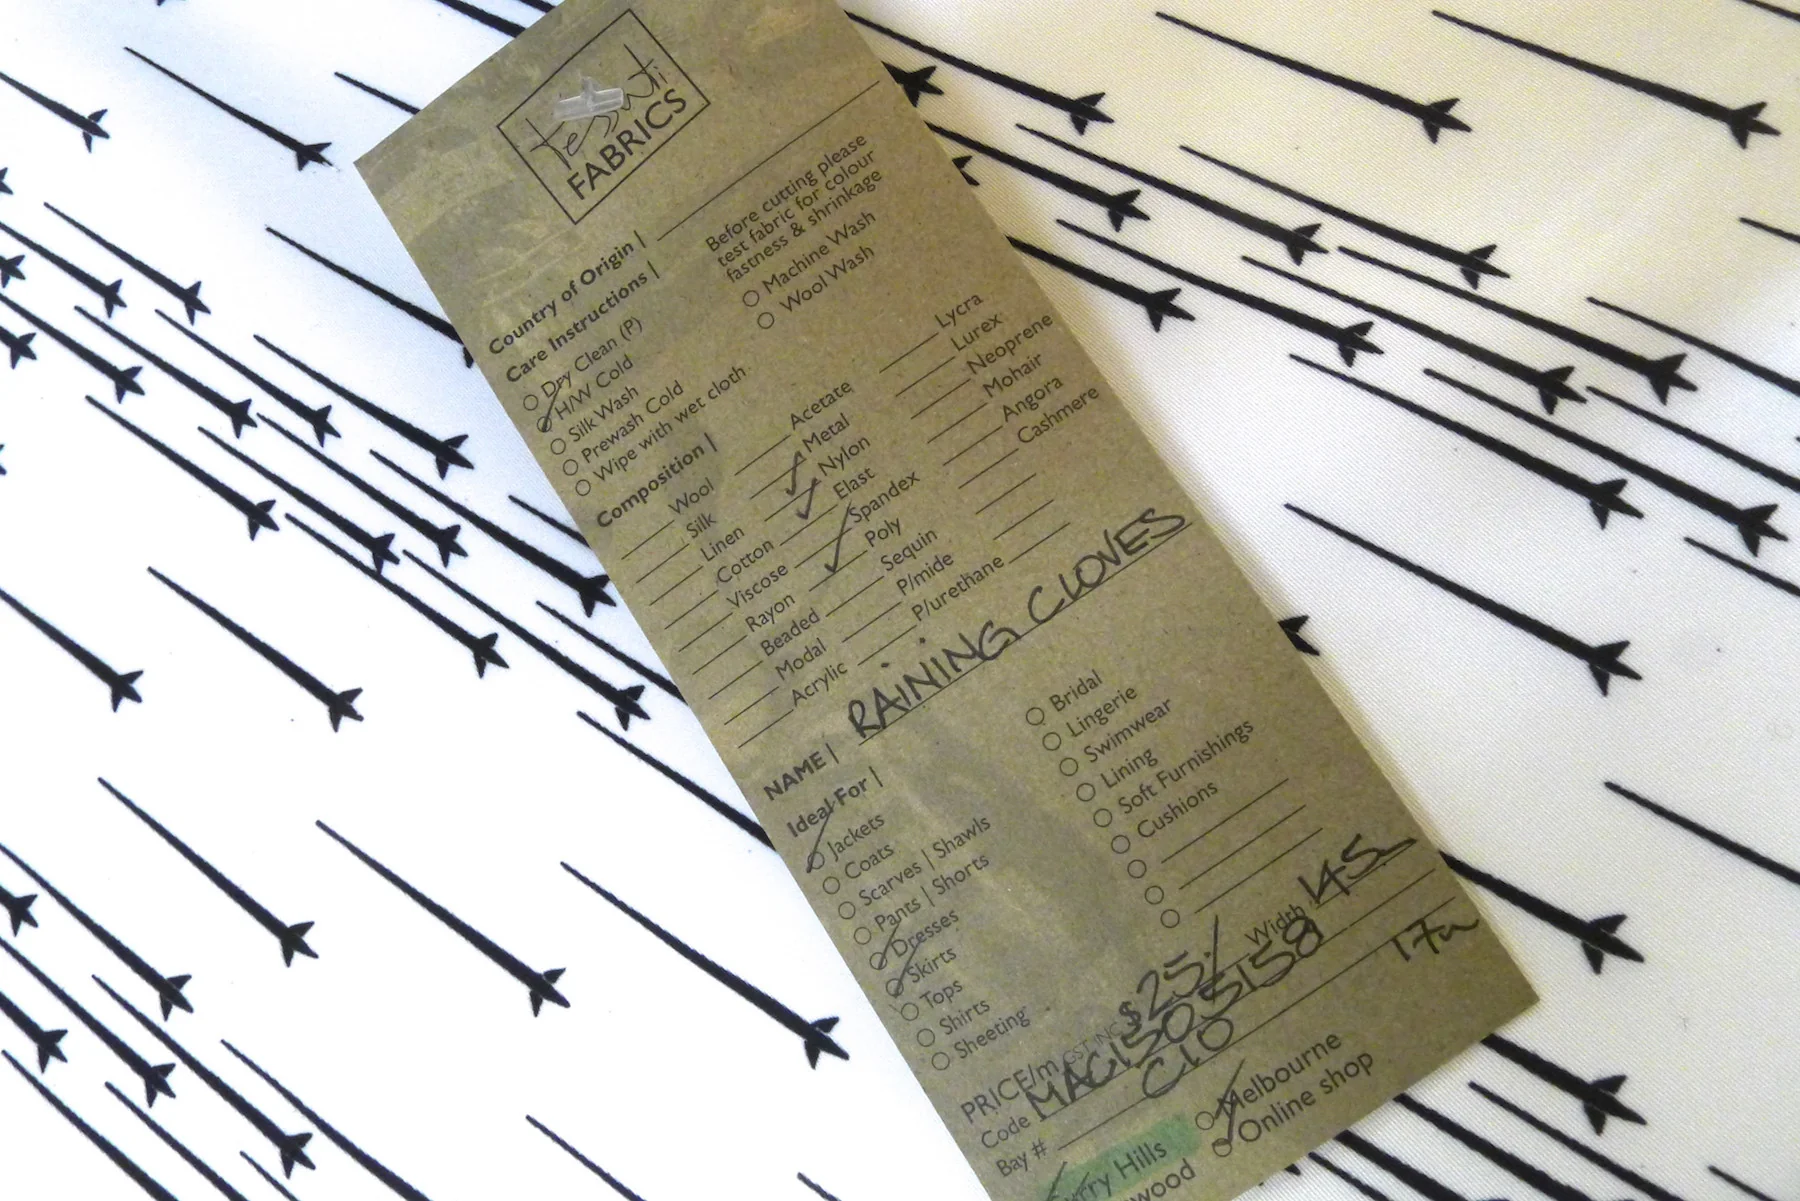 tessuti
FABRICS
Country of Origin |
Care Instructions |
Before cutting please
test fabric for colour
fastness & shrinkage
Dry Clean (P)
H/W Cold
Silk Wash
Prewash Cold
Wipe with wet cloth
Machine Wash
Wool Wash
Composition |
Wool
Silk
Linen
Cotton
Viscose
Rayon
Beaded
Modal
Acrylic
Acetate
Metal
Nylon
Elast
Spandex
Poly
Sequin
P/mide
P/urethane
Lycra
Lurex
Neoprene
Mohair
Angora
Cashmere
NAME | RAINING CLOVES
Ideal For |
Jackets
Coats
Scarves | Shawls
Pants | Shorts
Dresses
Skirts
Tops
Shirts
Sheeting
Bridal
Lingerie
Swimwear
Lining
Soft Furnishings
Cushions
PRICE/m GST INC $25/ Width 145
Code MAG1505158
Bay # C10 17m
Melbourne
Online shop
rry Hills
wood